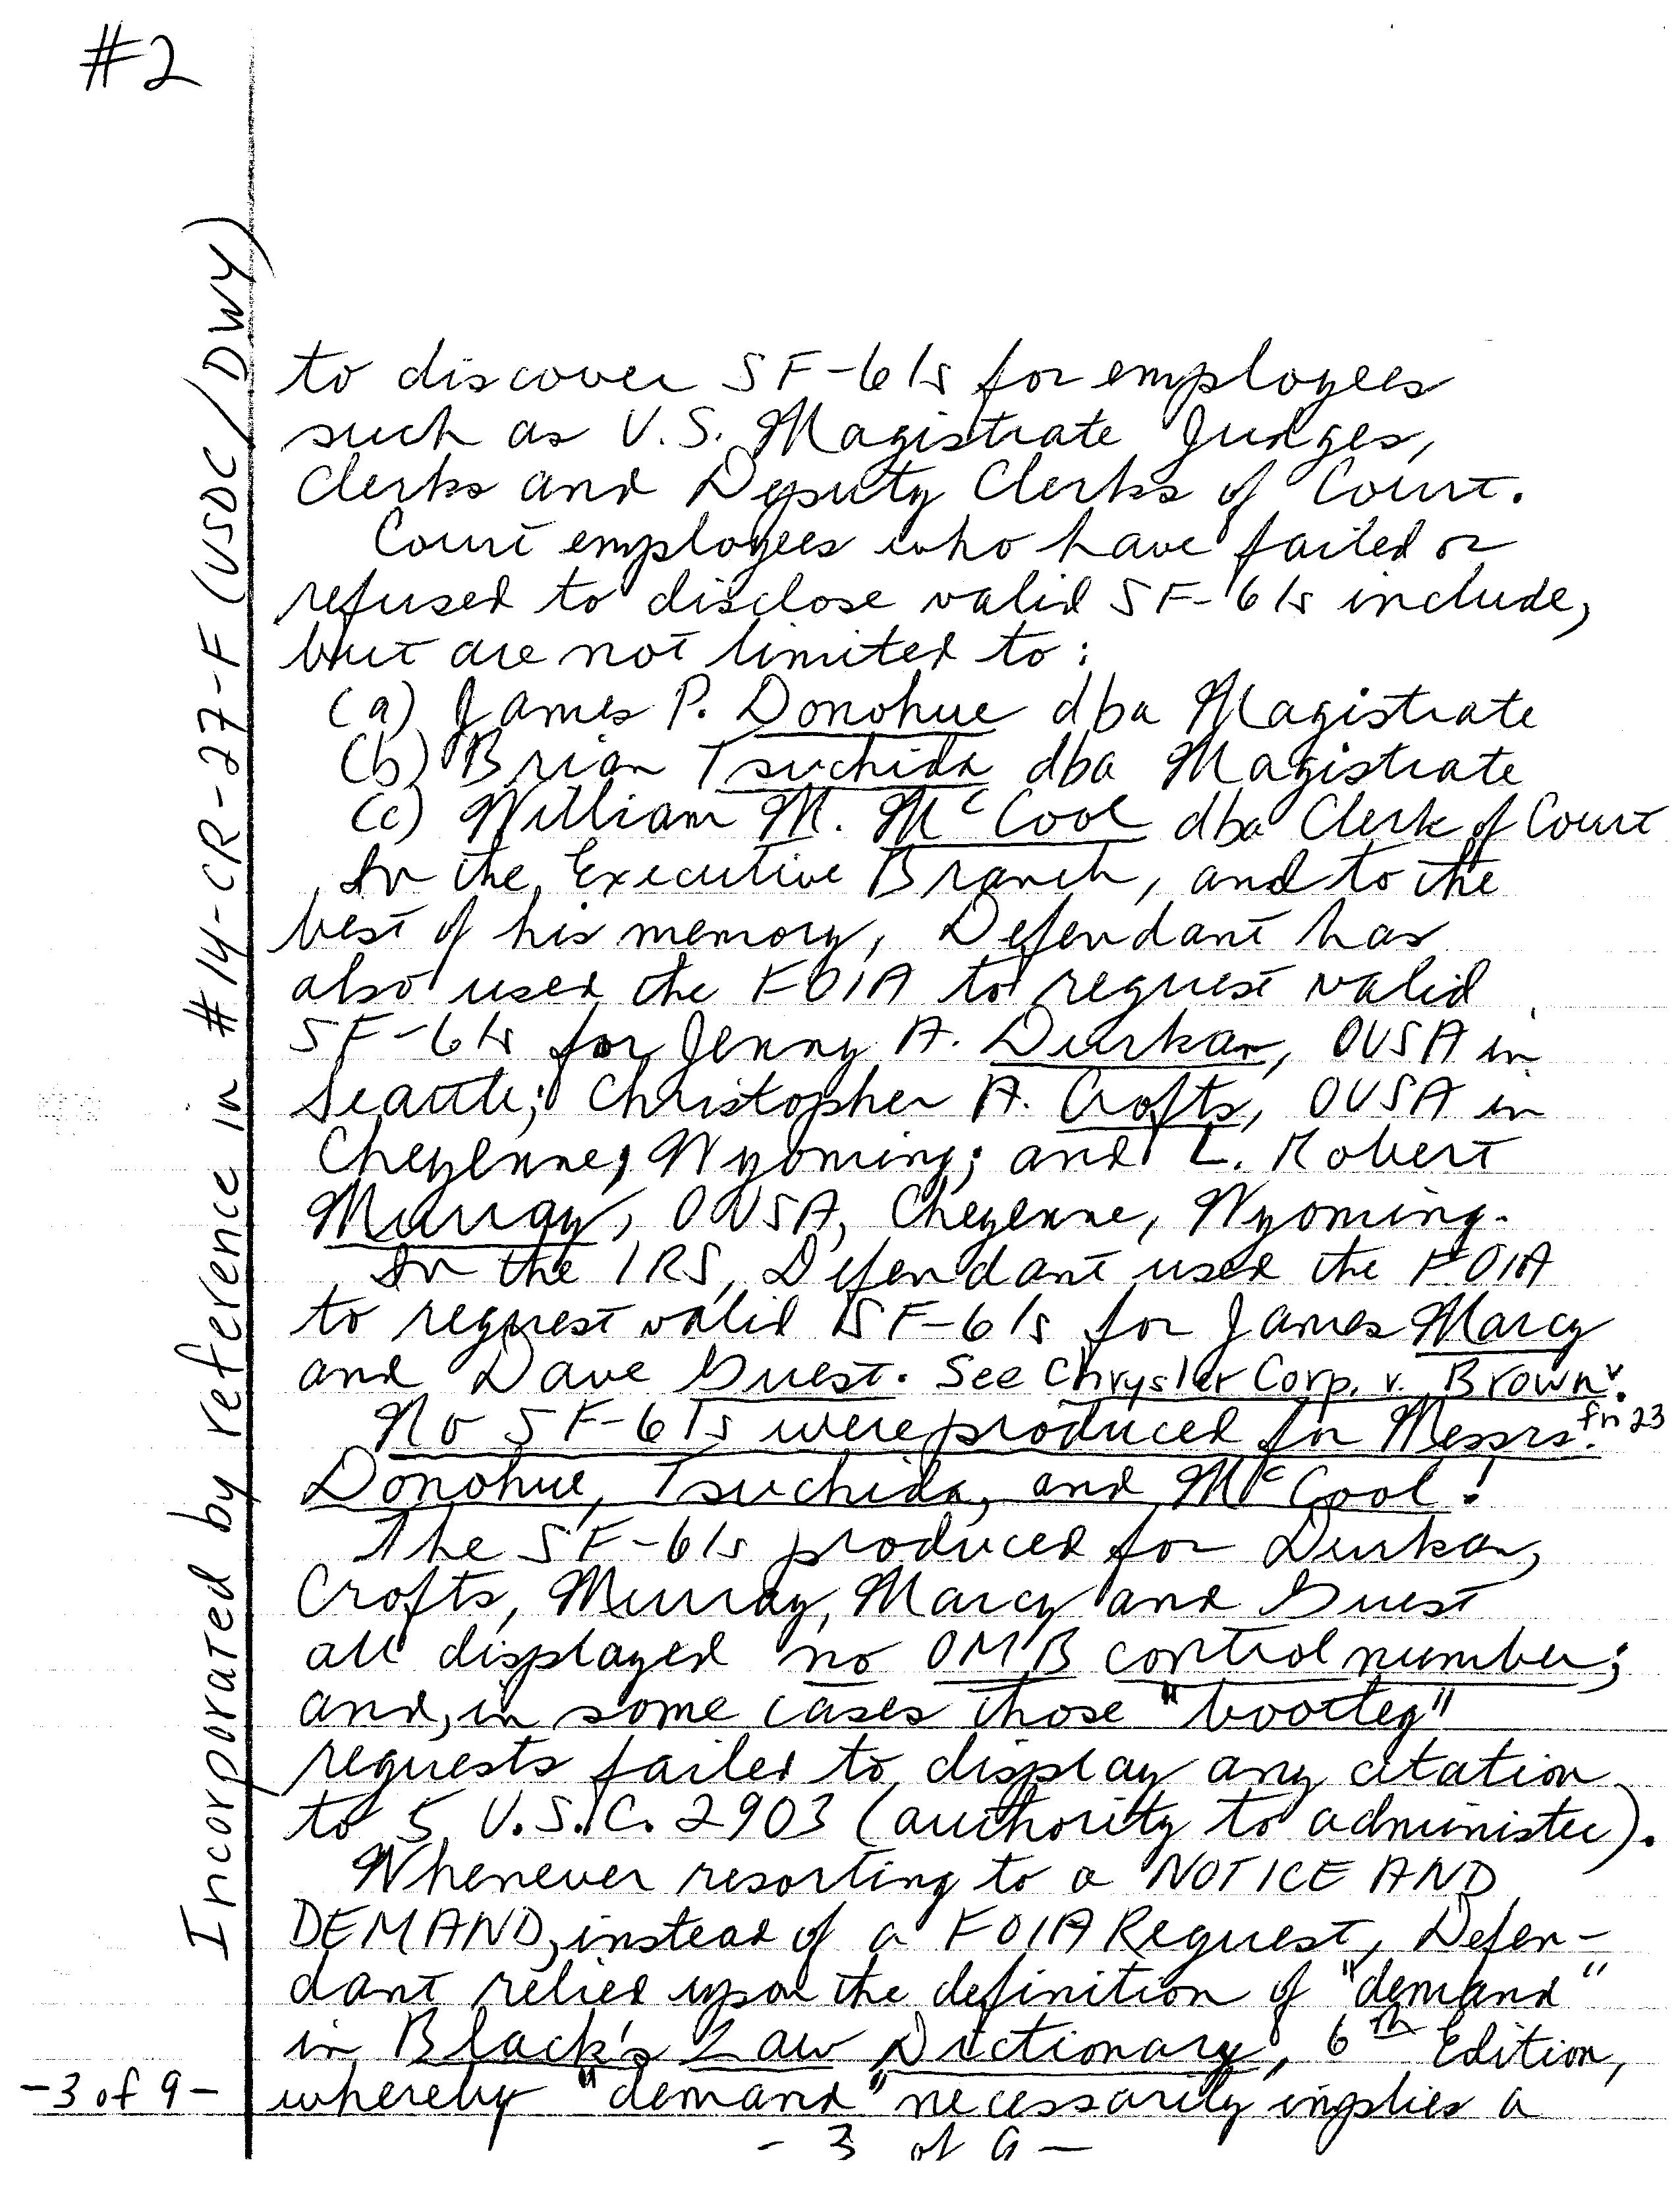 #2
Incorporated by reference in #14-CR-27-F (USDC/DWY)
to discover SF-61s for employees
such as U.S. Magistrate Judges,
Clerks and Deputy Clerks of Court.
Court employees who have failed or
refused to disclose valid SF-61s include,
but are not limited to:
(a) James P. Donohue dba Magistrate
(b) Brian Tsuchida dba Magistrate
(c) William M. McCool dba Clerk of Court
In the Executive Branch, and to the
best of his memory, Defendant has
also used the FOIA to request valid
SF-61s for Jenny A. Durkan, OUSA in
Seattle; Christopher A. Crofts, OUSA in
Cheyenne, Wyoming; and L. Robert
Murray, OUSA, Cheyenne, Wyoming.
In the IRS, Defendant used the FOIA
to request valid SF-61s for James Marcy
and Dave Guest. See Chrysler Corp. v. Brown.
fn 23
No SF-61s were produced for Messrs.
Donohue, Tsuchida, and McCool!
The SF-61s produced for Durkan,
Crofts, Murray, Marcy and Guest
all displayed no OMB control number;
and, in some cases those "bootleg"
requests failed to display any citation
to 5 U.S.C. 2903 (authority to administer).
Whenever resorting to a NOTICE AND
DEMAND, instead of a FOIA Request, Defen-
dant relied upon the definition of "demand"
in Black's Law Dictionary, 6th Edition,
whereby "demand" necessarily implies a
-3 of 9-
- 3 of 9 -